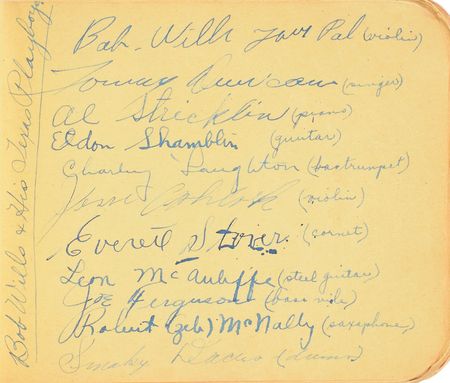 Bob Wills & His Texas Playboys
Bob Wills Your Pal (violin)
Tommy Duncan (singer)
Al Stricklin (piano)
Eldon Shamblin (guitar)
Charley Laughton (bas trumpet)
Jesse Ashlock (violin)
Everett Stover (cornet)
Leon McAuliffe (steel guitar)
Joe Ferguson (bass viole)
Robert (zeb) McNally (saxaphone)
Smoky Dacus (drums)